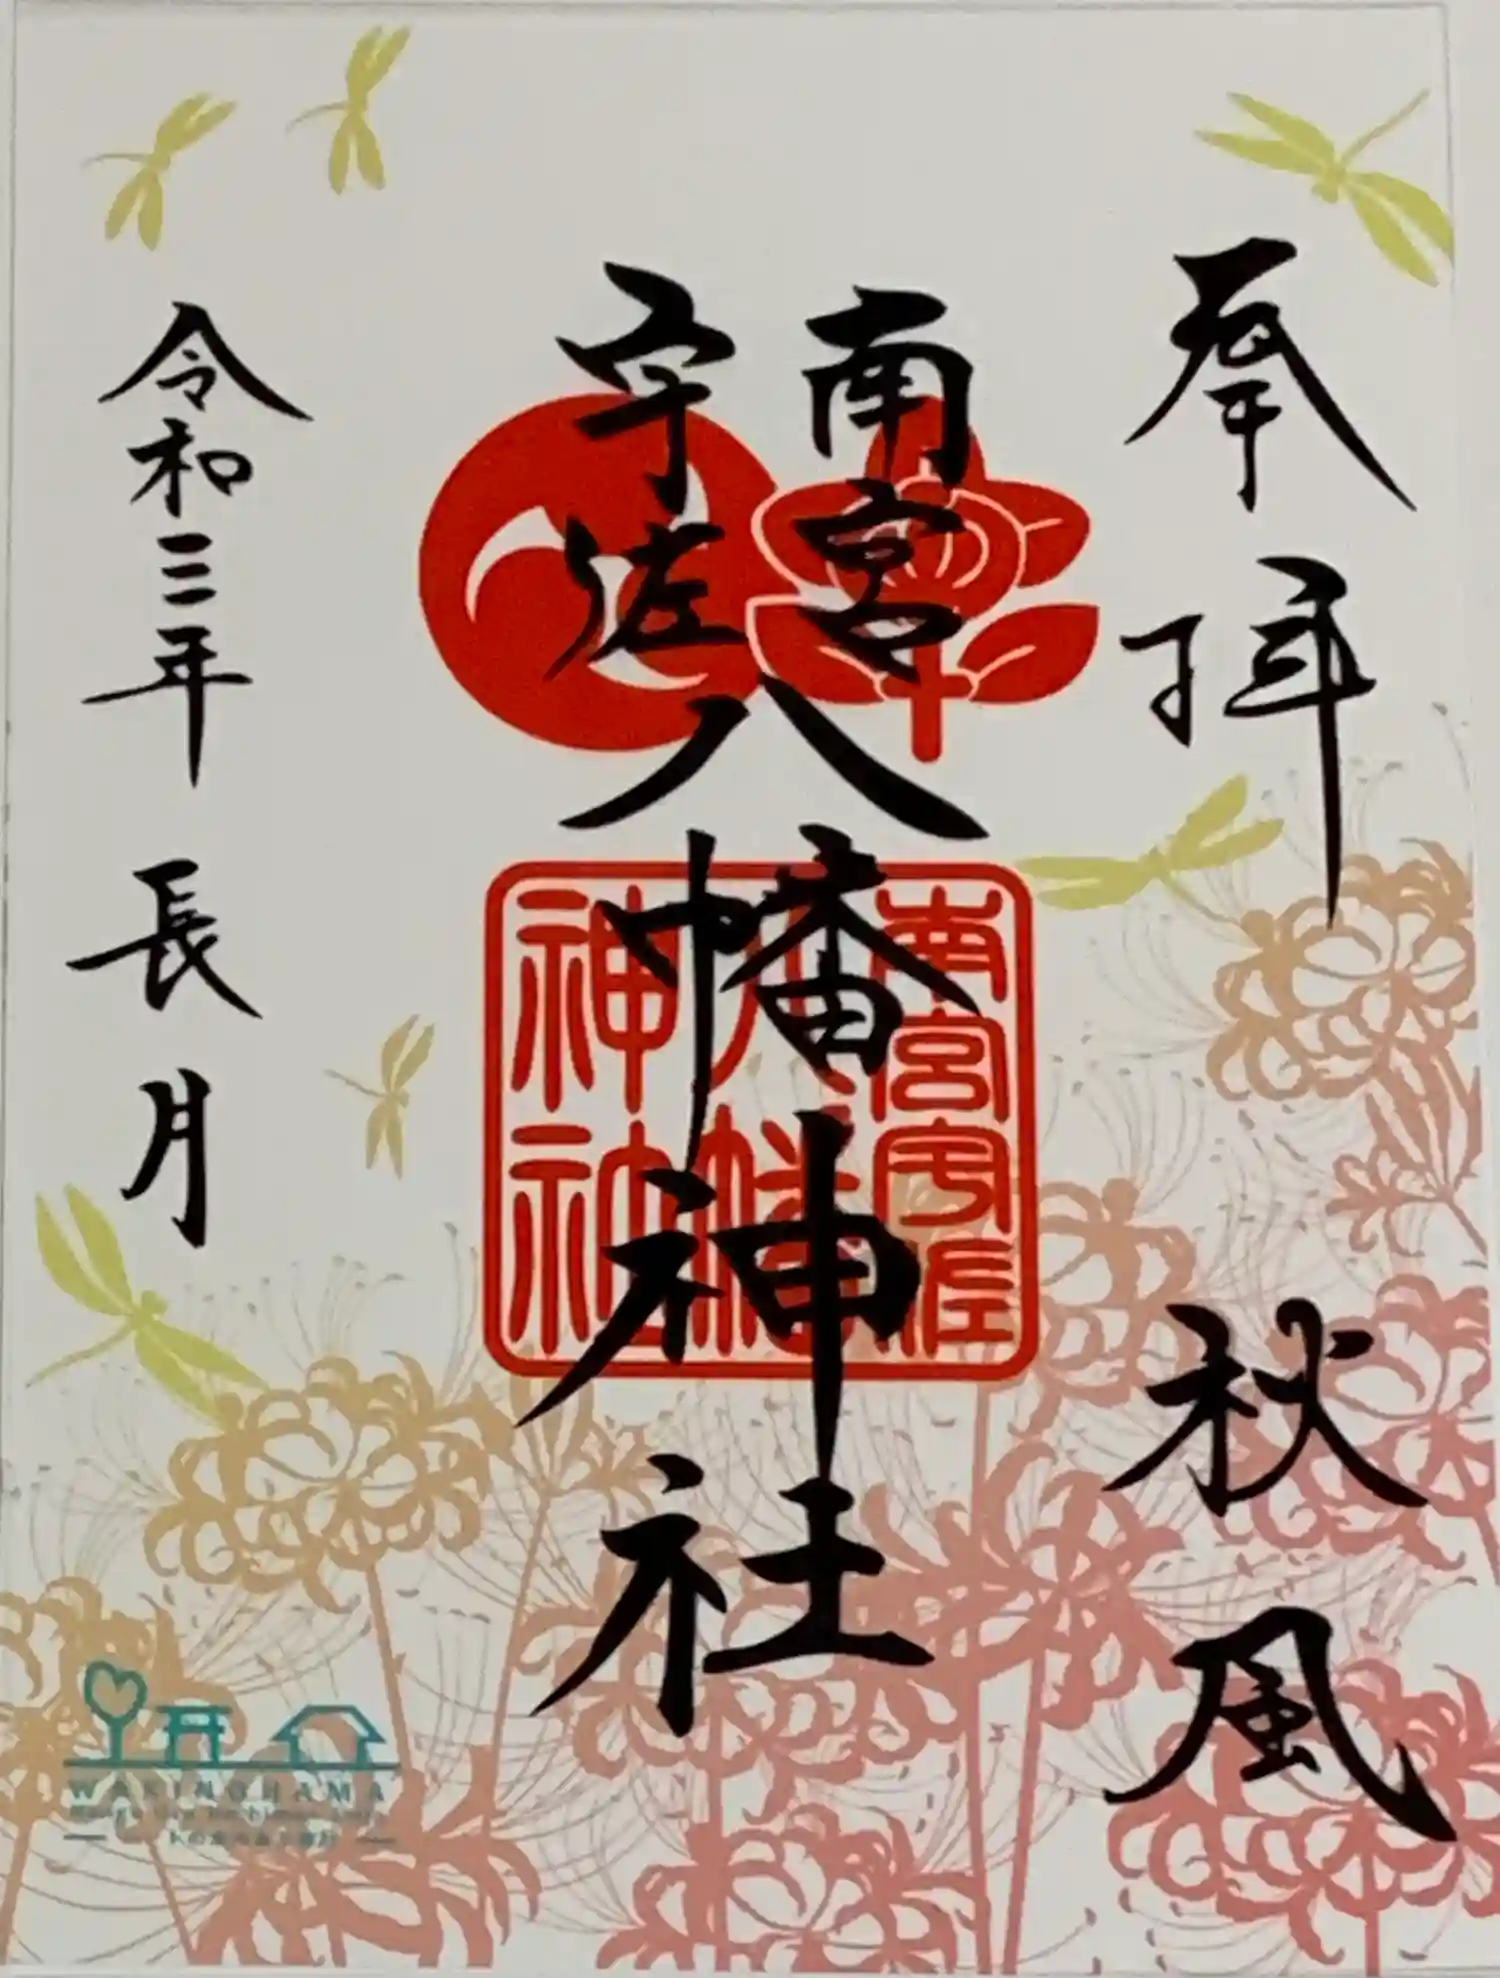 奉拝 秋風
南宮
宇佐
八幡神社
南宮宇佐
八幡
神社
令和三年 長月
WAKINOHAMA